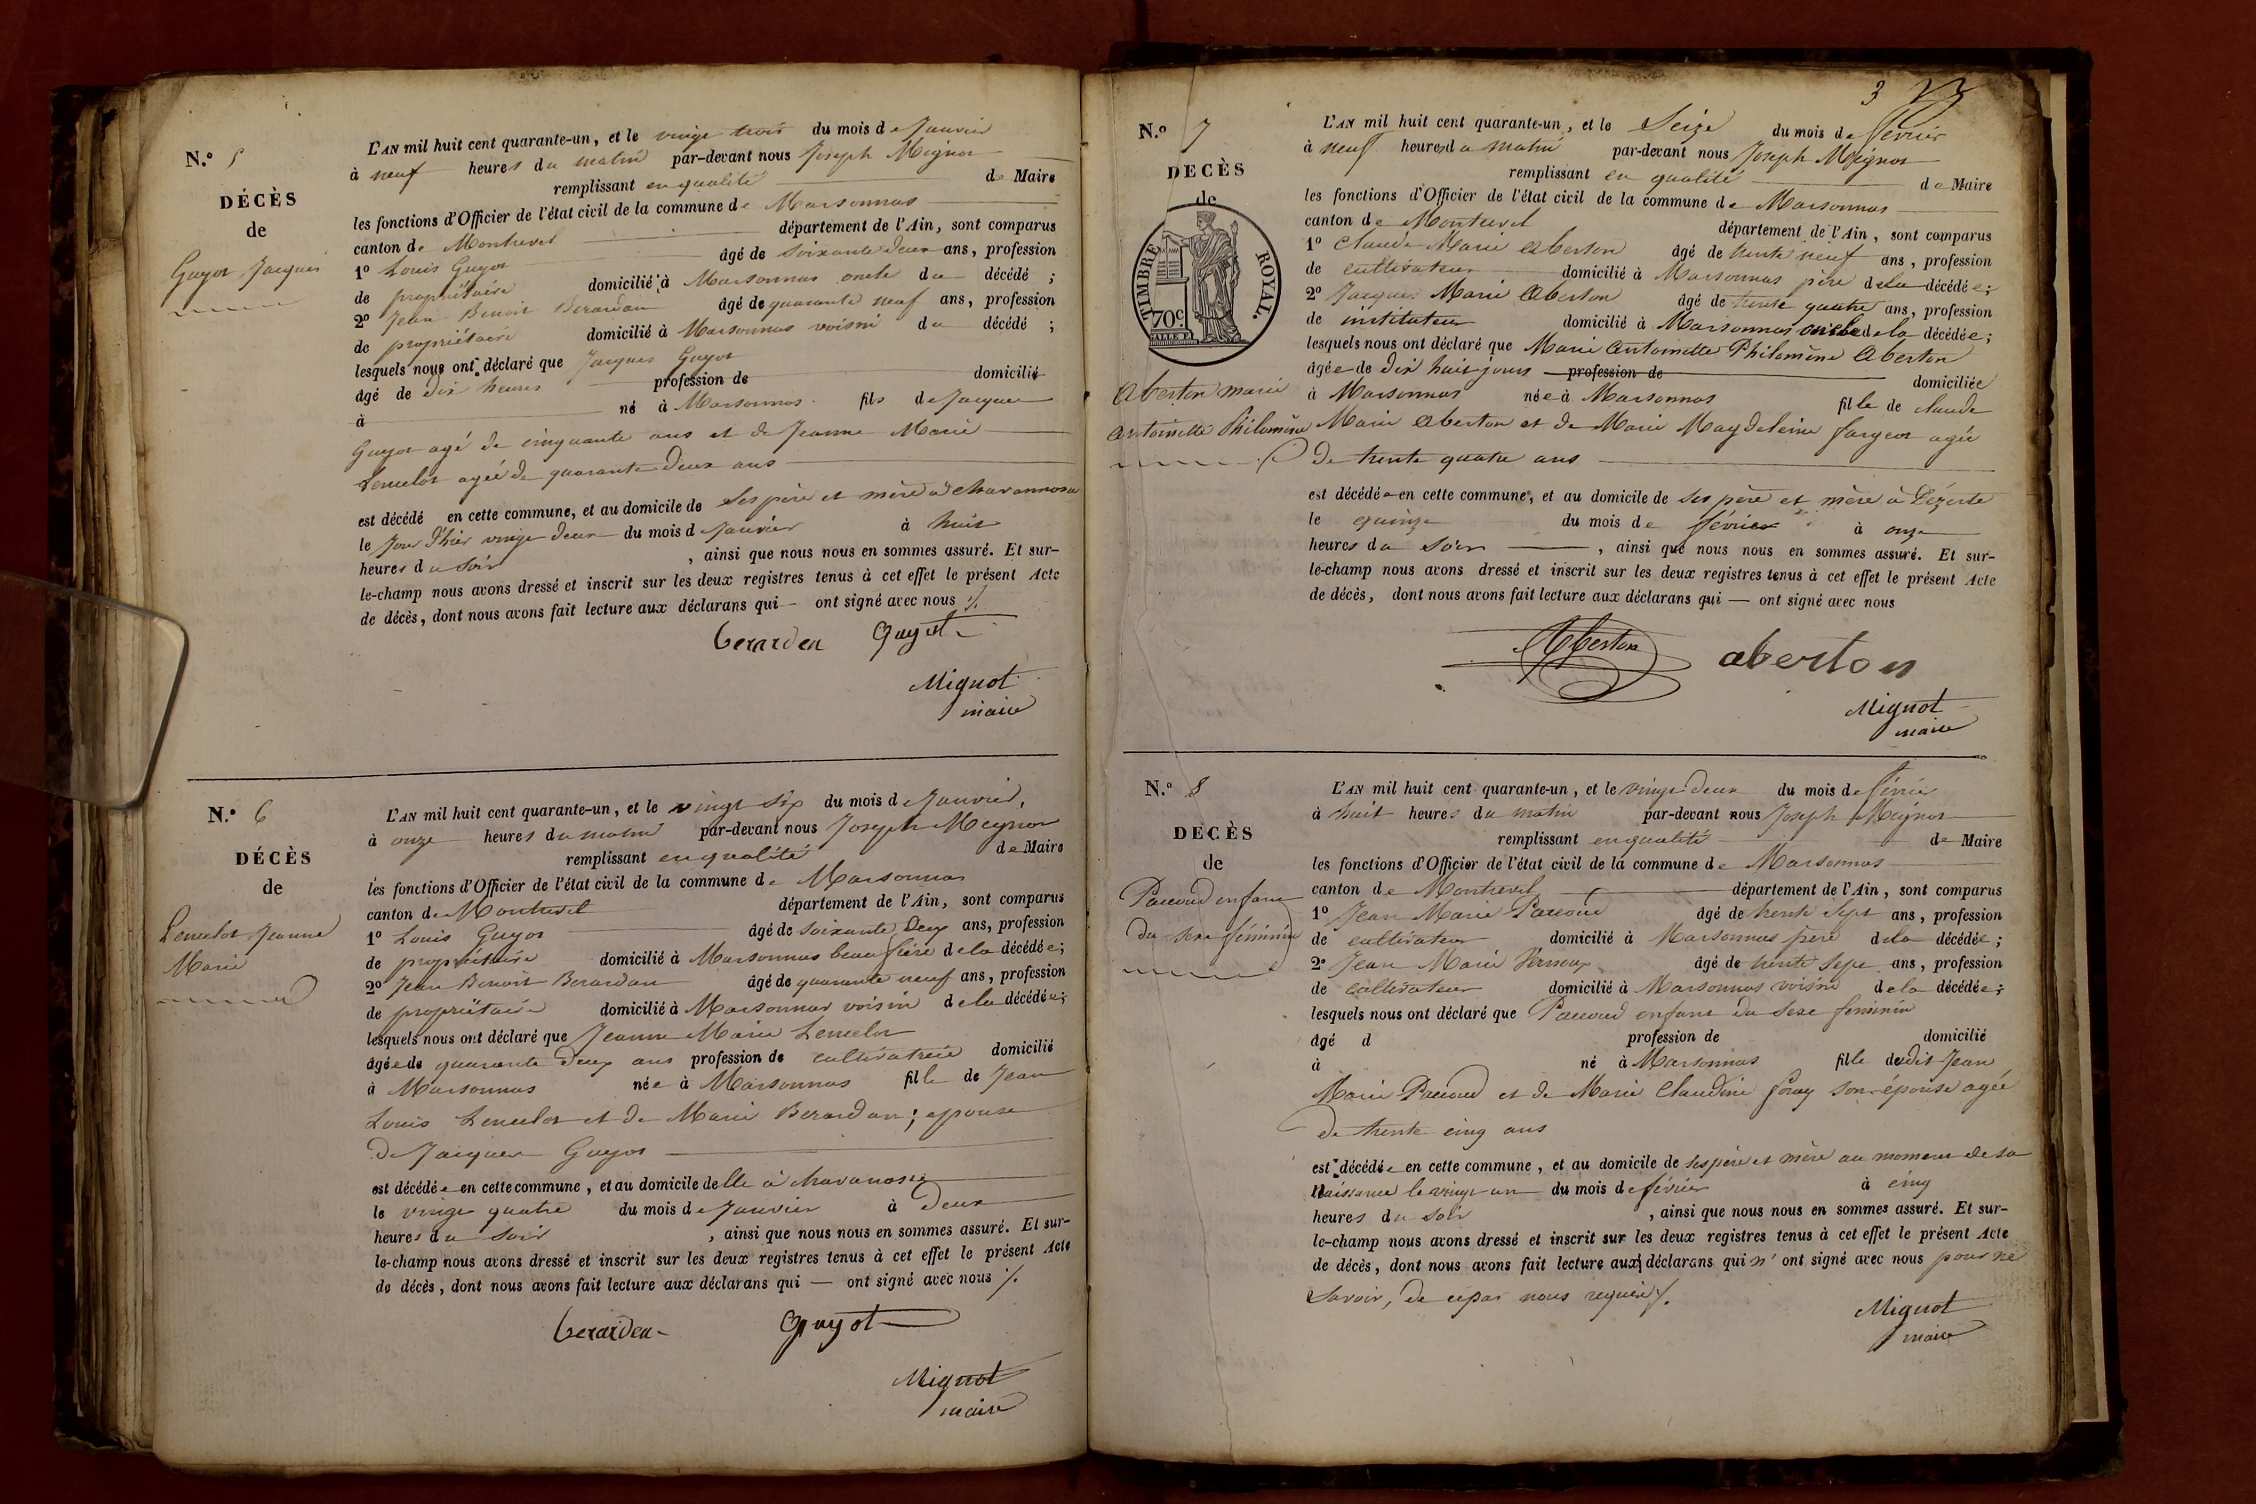 N.º 5
DÉCÈS
de
Guyot Jacques
L'AN mil huit cent quarante-un, et le vingt trois du mois de Janvier
à neuf heures du matin par-devant nous Joseph Mignot
remplissant en qualité de Maire
les fonctions d'Officier de l'état civil de la commune de Marsonnas
canton de Montrevel département de l'Ain, sont comparus
1º Louis Guyot âgé de soixante deux ans, profession
de propriétaire domicilié à Marsonnas oncle du décédé ;
2º Jean Benoit Berardan âgé de quarante neuf ans, profession
de propriétaire domicilié à Marsonnas voisin du décédé ;
lesquels nous ont déclaré que Jacques Guyot
âgé de dix heures profession de domicilié
à né à Marsonnas fils de Jacques
Guyot agé de cinquante ans et de Jeanne Marie
Lenulot agée de quarante deux ans
est décédé en cette commune, et au domicile de ses père et mère à
le jour d'hier vingt deux du mois de Janvier à huit
heures du soir , ainsi que nous nous en sommes assuré. Et sur-
le-champ nous avons dressé et inscrit sur les deux registres tenus à cet effet le présent Acte
de décès, dont nous avons fait lecture aux déclarans qui — ont signé avec nous ./.
Berardan Guyot
Mignot
maire
N.º 6
DÉCÈS
de
Lenulot Jeanne
Marie
L'AN mil huit cent quarante-un, et le vingt six du mois de Janvier,
à onze heures du matin par-devant nous Joseph Mignot
remplissant en qualité de Maire
les fonctions d'Officier de l'état civil de la commune de Marsonnas
canton de Montrevel département de l'Ain, sont comparus
1º Louis Guyot âgé de soixante Deux ans, profession
de propriétaire domicilié à Marsonnas beau frère de la décédée;
2º Jean Benoit Berardan âgé de quarante neuf ans, profession
de propriétaire domicilié à Marsonnas voisin de la décédée;
lesquels nous ont déclaré que Jeanne Marie Lenulot
âgée de quarante deux ans profession de cultivatrice domicilié
à Marsonnas née à Marsonnas fille de Jean
Louis Lenulot et de Marie Berardan; epouse
de Jacques Guyot
est décédée en cette commune, et au domicile delle à
le vingt quatre du mois de Janvier à deux
heures du soir , ainsi que nous nous en sommes assuré. Et sur-
le-champ nous avons dressé et inscrit sur les deux registres tenus à cet effet le présent Acte
de décès, dont nous avons fait lecture aux déclarans qui — ont signé avec nous ./.
Berardan Guyot
Mignot
maire
3
N.º 7
DÉCÈS
de
TIMBRE ROYAL.
70c
Aberton marie
antoinette Philomène
L'AN mil huit cent quarante-un, et le Seize du mois de février
à neuf heures du matin par-devant nous Joseph Mignot
remplissant en qualité de Maire
les fonctions d'Officier de l'état civil de la commune de Marsonnas
canton de Montrevel département de l'Ain, sont comparus
1º Claude Marie Aberton âgé de trente neuf ans, profession
de cultivateur domicilié à Marsonnas père de la décédée;
2º Jacques Marie Aberton âgé de trente quatre ans, profession
de instituteur domicilié à Marsonnas oncle de la décédée;
lesquels nous ont déclaré que Marie Antoinette Philomène Aberton
âgée de dix huit jours profession de domiciliée
à Marsonnas née à Marsonnas fille de claude
Marie Aberton et de Marie Magdeleine fargeot agée
de trente quatre ans
est décédée en cette commune, et au domicile de ses père et mère à
le quinze du mois de février à onze
heures du soir , ainsi que nous nous en sommes assuré. Et sur-
le-champ nous avons dressé et inscrit sur les deux registres tenus à cet effet le présent Acte
de décès, dont nous avons fait lecture aux déclarans qui — ont signé avec nous
Aberton aberton
Mignot
maire
N.º 8
DÉCÈS
de
Pacoud enfant
du sexe féminin
L'AN mil huit cent quarante-un, et le vingt deux du mois de février
à huit heures du matin par-devant nous Joseph Mignot
remplissant en qualité de Maire
les fonctions d'Officier de l'état civil de la commune de Marsonnas
canton de Montrevel département de l'Ain, sont comparus
1º Jean Marie Pacoud âgé de trente sept ans, profession
de cultivateur domicilié à Marsonnas père de la décédée;
2º Jean Marie âgé de trente sept ans, profession
de cultivateur domicilié à Marsonnas voisin de la décédée;
lesquels nous ont déclaré que Pacoud enfant du sexe féminin
âgé d profession de domicilié
à né à Marsonnas fille dudit Jean
Marie Pacoud et de Marie Claudine foray son épouse agée
de trente cinq ans
est décédée en cette commune, et au domicile de ses père et mère au moment de sa
naissance le vingt un du mois de février à cinq
heures du soir , ainsi que nous nous en sommes assuré. Et sur-
le-champ nous avons dressé et inscrit sur les deux registres tenus à cet effet le présent Acte
de décès, dont nous avons fait lecture aux déclarans qui n'ont signé avec nous pour ne
savoir, de ce par nous requis ./.
Mignot
maire